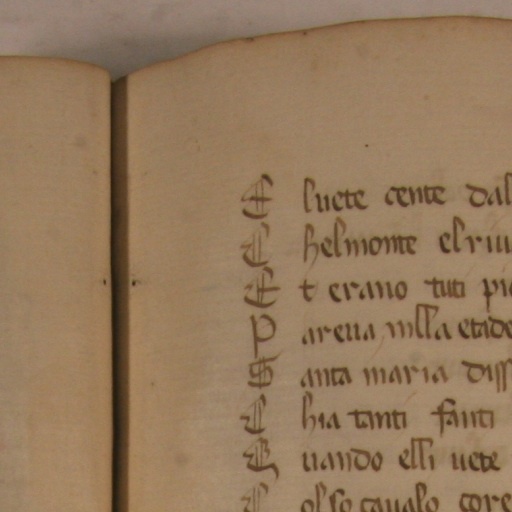 E l uete cente dal
C helmonte el riu
E t erano tuti pi
P areua nilla etade
S anta maria diss
C hia tanti fanti
Q uando elli uete
C ol so caualo core